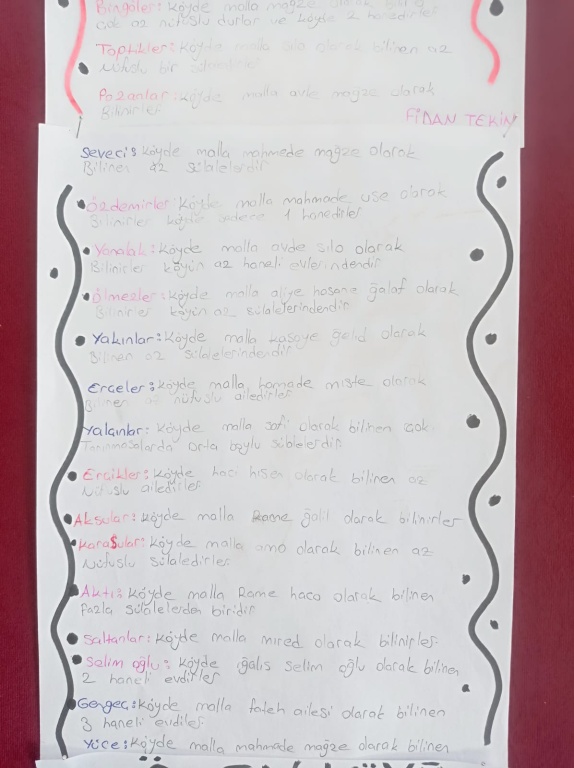 Bingöller: köyde malla mağze olarak
çok az nüfuslu durlar ve köyde 2 hanedirler
Toptikler: köyde malla silo olarak bilinen az
Nüfuslu bir
Pozanlar: köyde malla avle mağze olarak
Bilinirler
FİDAN TEKİN
Seveci's köyde malla mahmede mağze olarak
Bilinen az sülalelerdir
Özdemirler köyde malla mahmade use olarak
Bilinirler köyde sadece 1 hanedirler
köyde malla avde silo olarak
Bilinirler köyün az haneli evlerindendir
Ölmezler: köyde malla aliye hasane ğalaf olarak
Bilinirler köyün az sülalelerindendir
Yakınlar: köyde malla kasoye ğalid olarak
Bilinen az sülalelerindendir
Erceler: köyde malla hamade miste olarak
Bilinen az nüfuslu ailedirler
Yalçınlar: köyde malla sofi olarak bilinen çok
orta boylu sülalelerdir
Ercikler: köyde hacı hisen olarak bilinen az
Nüfuslu ailedirler
Aksular: köyde malla Rame ğalil olarak bilinirler
Karasular: köyde malla amo olarak bilinen az
Nüfuslu sülaledirler
köyde malla Rame haco olarak bilinen
Fazla sülalelerden biridir
Saltanlar: köyde malla mired olarak bilinirler
Selim oğlu: köyde ğalis selim oğlu olarak bilinen
2 haneli evdirler
Gergeç: köyde malla fateh ailesi olarak bilinen
3 haneli evdiler
Yüce: köyde malla mahmade mağze olarak bilinen